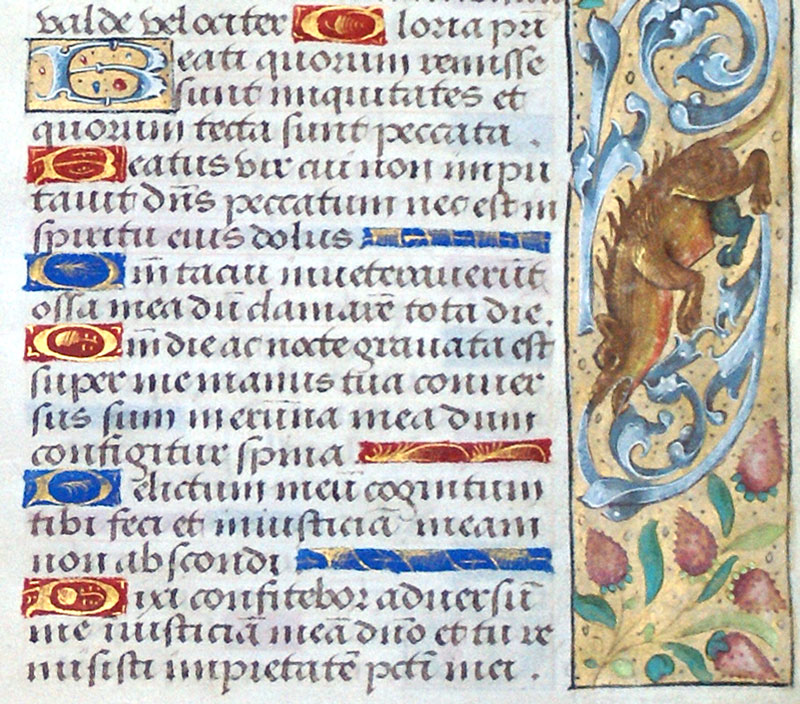 valde velociter Gloria pri
Beati quorum remisse
sunt iniquitates et
quorum tecta sunt peccata.
Beatus vir cui non impu
tavit dn̄s peccatum nec est in
spiritu eius dolus
Qm̄ tacui inveteraverūt
ossa mea dū clamarē tota die.
Qm̄ die ac nocte gravata est
super me manus tua conver
sus sum in erūna mea dum
configitur spina
Delictum meū cognitum
tibi feci et iniusticiā meam
non abscondi
Dixi confitebor adversū
me iniusticiā meā dn̄o et tu re
misisti impietatē pctī mei.